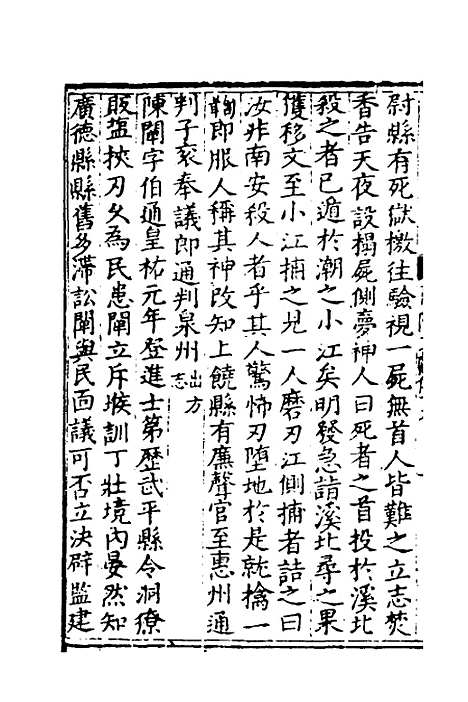 尉縣有死獄檄往驗視一屍無首人皆難之立志焚
香告天夜設榻屍側夢神人曰死者之首投於溪北
殺之者已遁於潮之小江矣明發急詣溪北尋之果
獲移文至小江捕之見一人磨刃江側捕者詰之曰
汝非南安殺人者乎其人驚怖刃墮地於是就擒一
鞫即服人稱其神改知上饒縣有廉聲官至惠州通
判子亥奉議郎通判泉州出方志
陳闡字伯通皇祐元年登進士第歷武平縣令洞獠
販盐挾刀久為民患闡立斥堠訓丁壯境内晏然知
廣德縣縣舊多滯訟闡與民面議可否立決辟監建